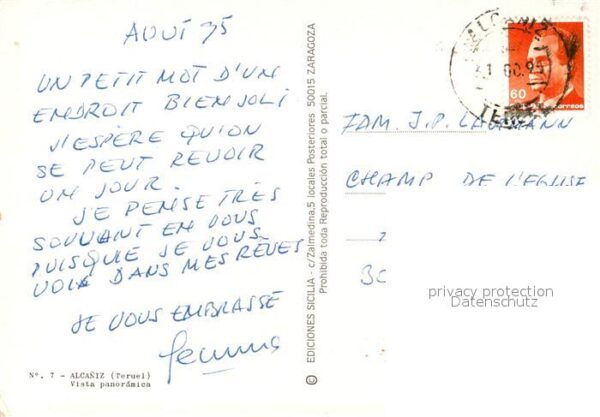 AOUT 95
UN PETIT MOT D'UN
ENDROIT BIEN JOLI
J'ESPÈRE QU'ON
SE PEUT REVOIR
UN JOUR.
JE PENSE TRÈS
SOUVANT EN VOUS
PUISQUE JE VOUS
VOIX DANS MES RÊVES
JE VOUS EMBRASSE
Nº. 7 - ALCAÑIZ (Teruel)
Vista panorámica
© EDICIONES SICILIA - c/Zalmedina,5 locales Posteriores 50015 ZARAGOZA
Prohibida toda Reproducción total o parcial.
ALCAÑIZ
60
correos
FAM. J.P. LAUMANN
CHAMP DE L'EGLISE
privacy protection
Datenschutz